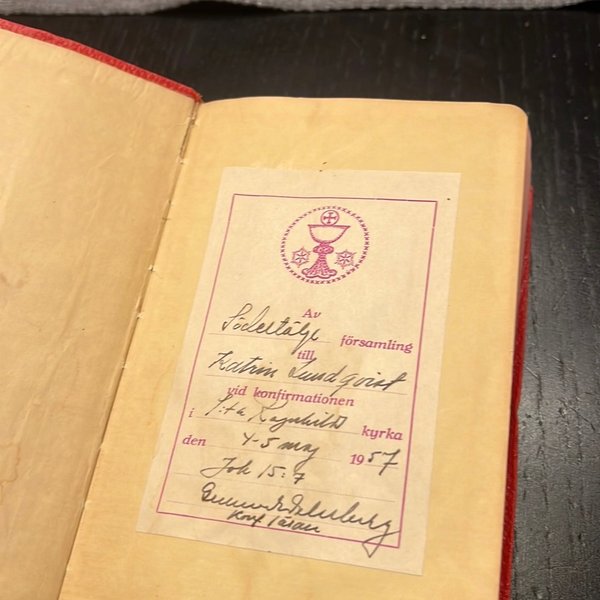 Av
Södertälje församling
till
Katrin Lundqvist
vid konfirmationen
i S:ta Ragnhild kyrka
den 4-5 maj 1957
Joh 15:7
Konf.